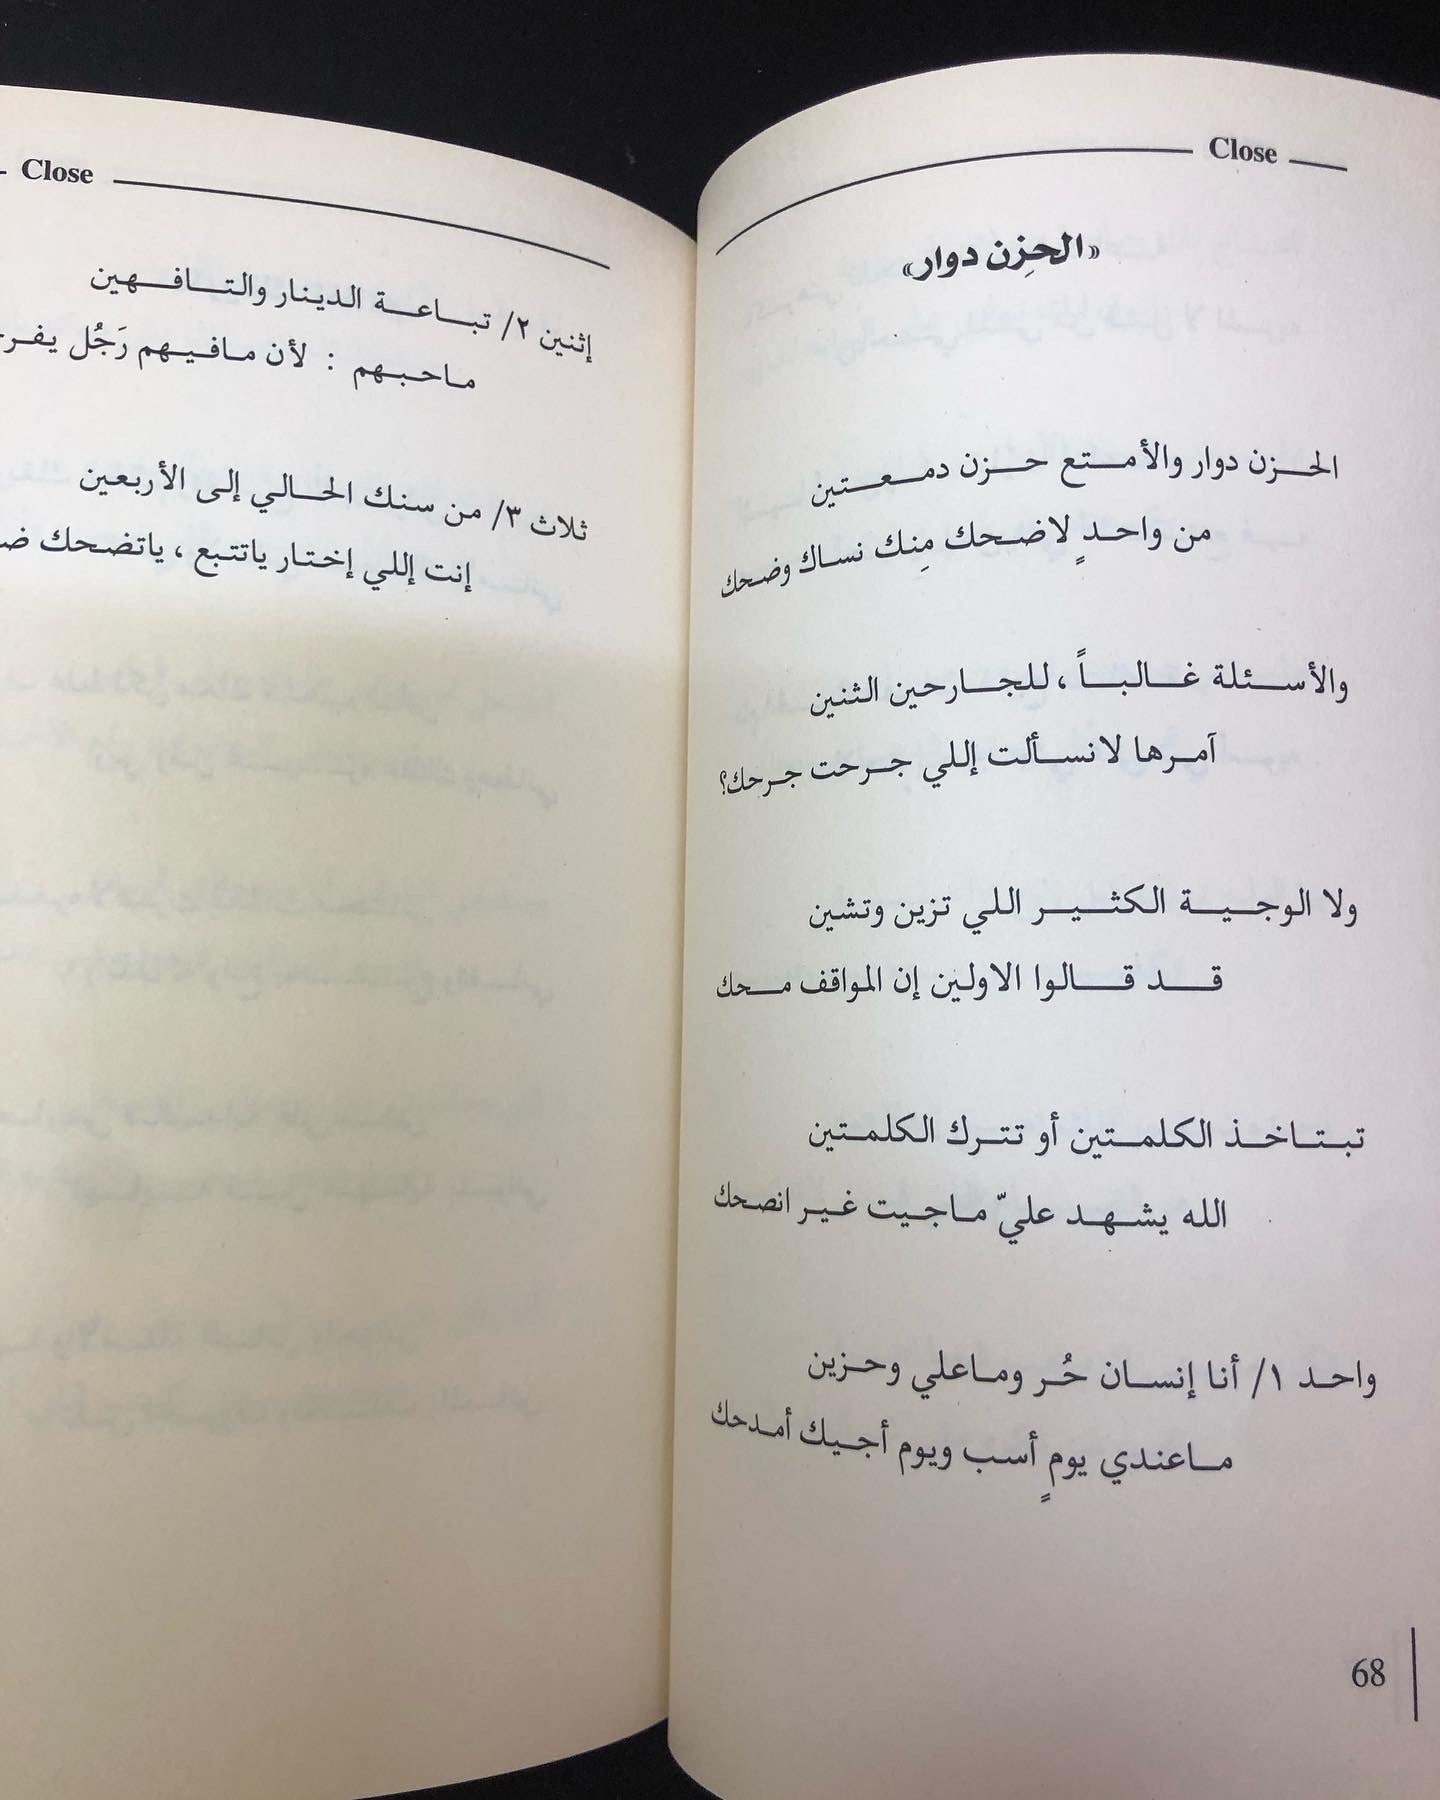 Close
«الحِزن دوار»
الحزن دوار والأمتع حزن دمعتين
من واحدٍ لاضحك مِنك نساك وضحك
والأسئلة غالباً ، للجارحين الثنين
آمرها لانسألت إللي جرحت جرحك؟
ولا الوجية الكثير اللي تزين وتشين
قد قالوا الاولين إن المواقف محك
تبتاخذ الكلمتين أو تترك الكلمتين
الله يشهد عليّ ماجيت غير انصحك
واحد ١/ أنا إنسان حُر وماعلي وحزين
ماعندي يومٍ أسب ويوم أجيك أمدحك
68
Close
إثنين ٢/ تباعة الدينار والتافهين
ماحبهم : لأن مافيهم رَجُل
ثلاث ٣/ من سنك الحالي إلى الأربعين
إنت إللي إختار ياتتبع ، ياتضحك